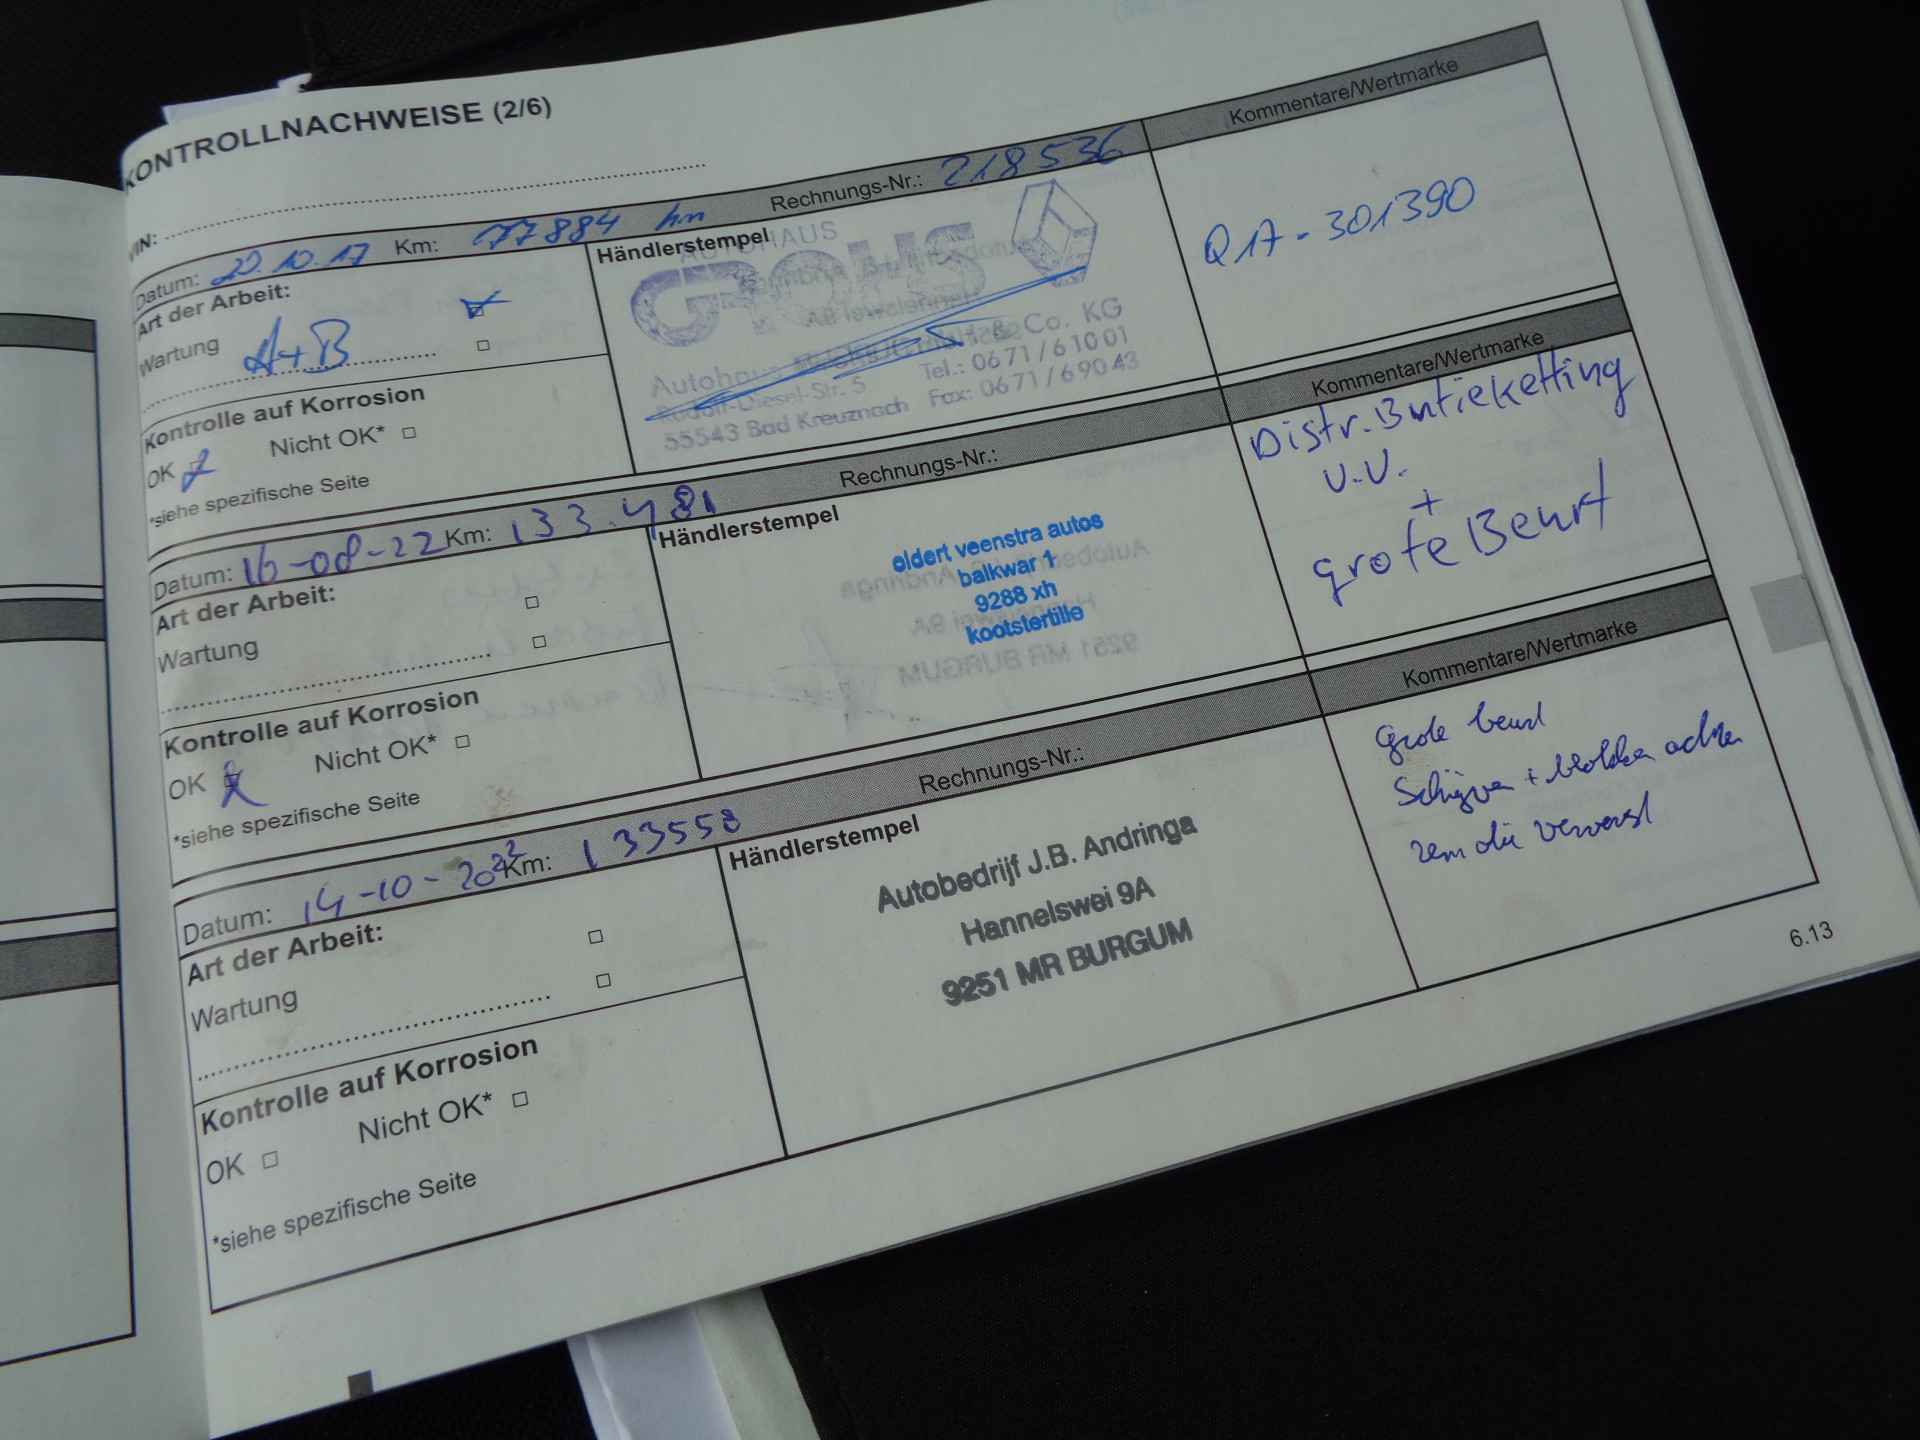 KONTROLLNACHWEISE (2/6)
VIN:
Datum: 20.10.17 Km: 77884 km Rechnungs-Nr.: 218536 Kommentare/Wertmarke
Art der Arbeit:
Wartung A+B
Kontrolle auf Korrosion
OK Nicht OK*
*siehe spezifische Seite
Händlerstempel
AUTOHAUS
GROHS
Autohaus Co. KG
Rudolf-Diesel-Str. 5 Tel.: 06 71 / 6 10 01
55543 Bad Kreuznach Fax: 06 71 / 6 90 43
Q17-301390
Datum: 16-08-22 Km: 133.481 Rechnungs-Nr.: Kommentare/Wertmarke
Art der Arbeit:
Wartung
Kontrolle auf Korrosion
OK Nicht OK*
*siehe spezifische Seite
Händlerstempel
oldert veenstra autos
balkwar 1
9288 xh
kootstertille
Distr.Butieketting
V.V.
+
grote Beurt
Datum: 14-10-2022 Km: 133558 Rechnungs-Nr.: Kommentare/Wertmarke
Art der Arbeit:
Wartung
Kontrolle auf Korrosion
OK Nicht OK*
*siehe spezifische Seite
Händlerstempel
Autobedrijf J.B. Andringa
Hannelswei 9A
9251 MR BURGUM
Grote beurt
Schijven + blokken achter
remolie ververst
6.13